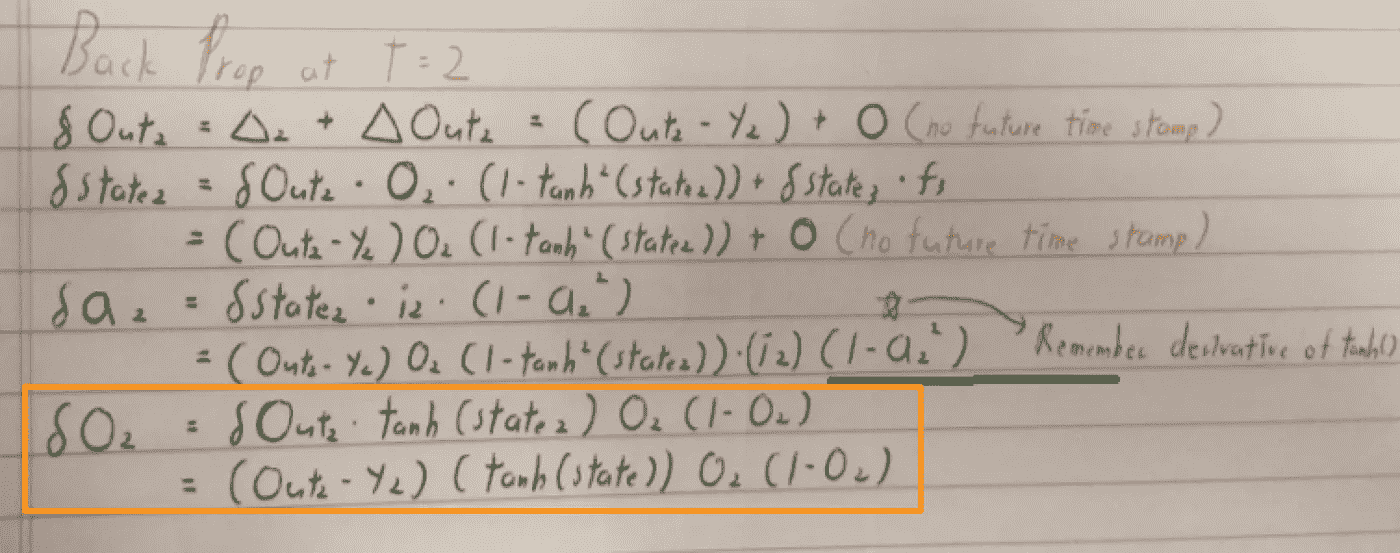 Back Prop at T = 2
δOut₂ = Δ₂ + ΔOut₂ = (Out₂ - Y₂) + 0 (no future time stamp)
δstate₂ = δOut₂ · O₂ · (1 - tanh²(state₂)) + δstate₃ · f₃
= (Out₂ - Y₂) O₂ (1 - tanh²(state₂)) + 0 (no future time stamp)
δa₂ = δstate₂ · i₂ · (1 - a₂²)
= (Out₂ - Y₂) O₂ (1 - tanh²(state₂)) · (i₂) (1 - a₂²) ☆ → Remember derivative of tanh()
δO₂ = δOut₂ · tanh (state₂) O₂ (1 - O₂)
= (Out₂ - Y₂) (tanh(state)) O₂ (1 - O₂)